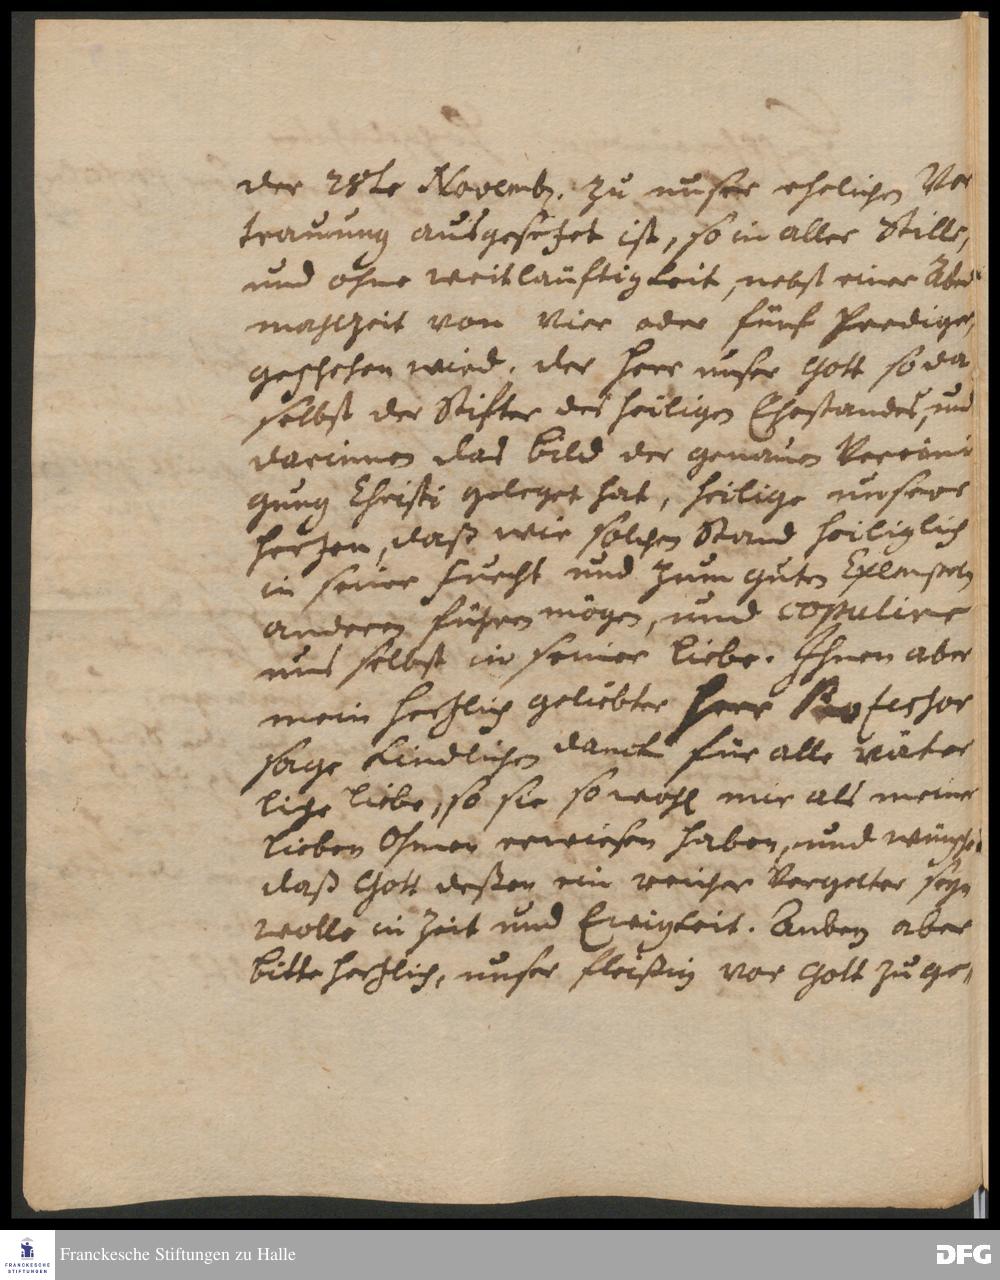 der 28te Novemb. zu unser ehelichen Ver
trauung ausgesetzet ist, so in aller Stille,
und ohne weitläuftigkeit, nebst einer Abend
mahlzeit von vier oder fünf Prediger,
geschehen wird. der Herr unser Gott so da
selbst der Stifter des heiligen Ehestandes, und
darinnen das bild der genauen Vereini
gung Christi geleget hat, heilige unsere
hertzen, daß wir solchen Stand heiliglich
in seiner furcht und zum guten Exempeln
anderen führen mögen, und copulire
uns selbst in seiner liebe. Ihnen aber
mein hertzlich geliebter Herr Professor
sage kindlichen danck für alle väter
liche liebe, so sie so wohl mir als meiner
lieben erwiesen haben, und wünsche
daß Gott deßen ein reicher Vergelter seyn
wolle in Zeit und Ewigkeit. Anbey aber
bitte hertzlich, unser fleißig vor Gott zu ge,
Franckesche Stiftungen zu Halle
FRANCKESCHE
STIFTUNGEN
DFG